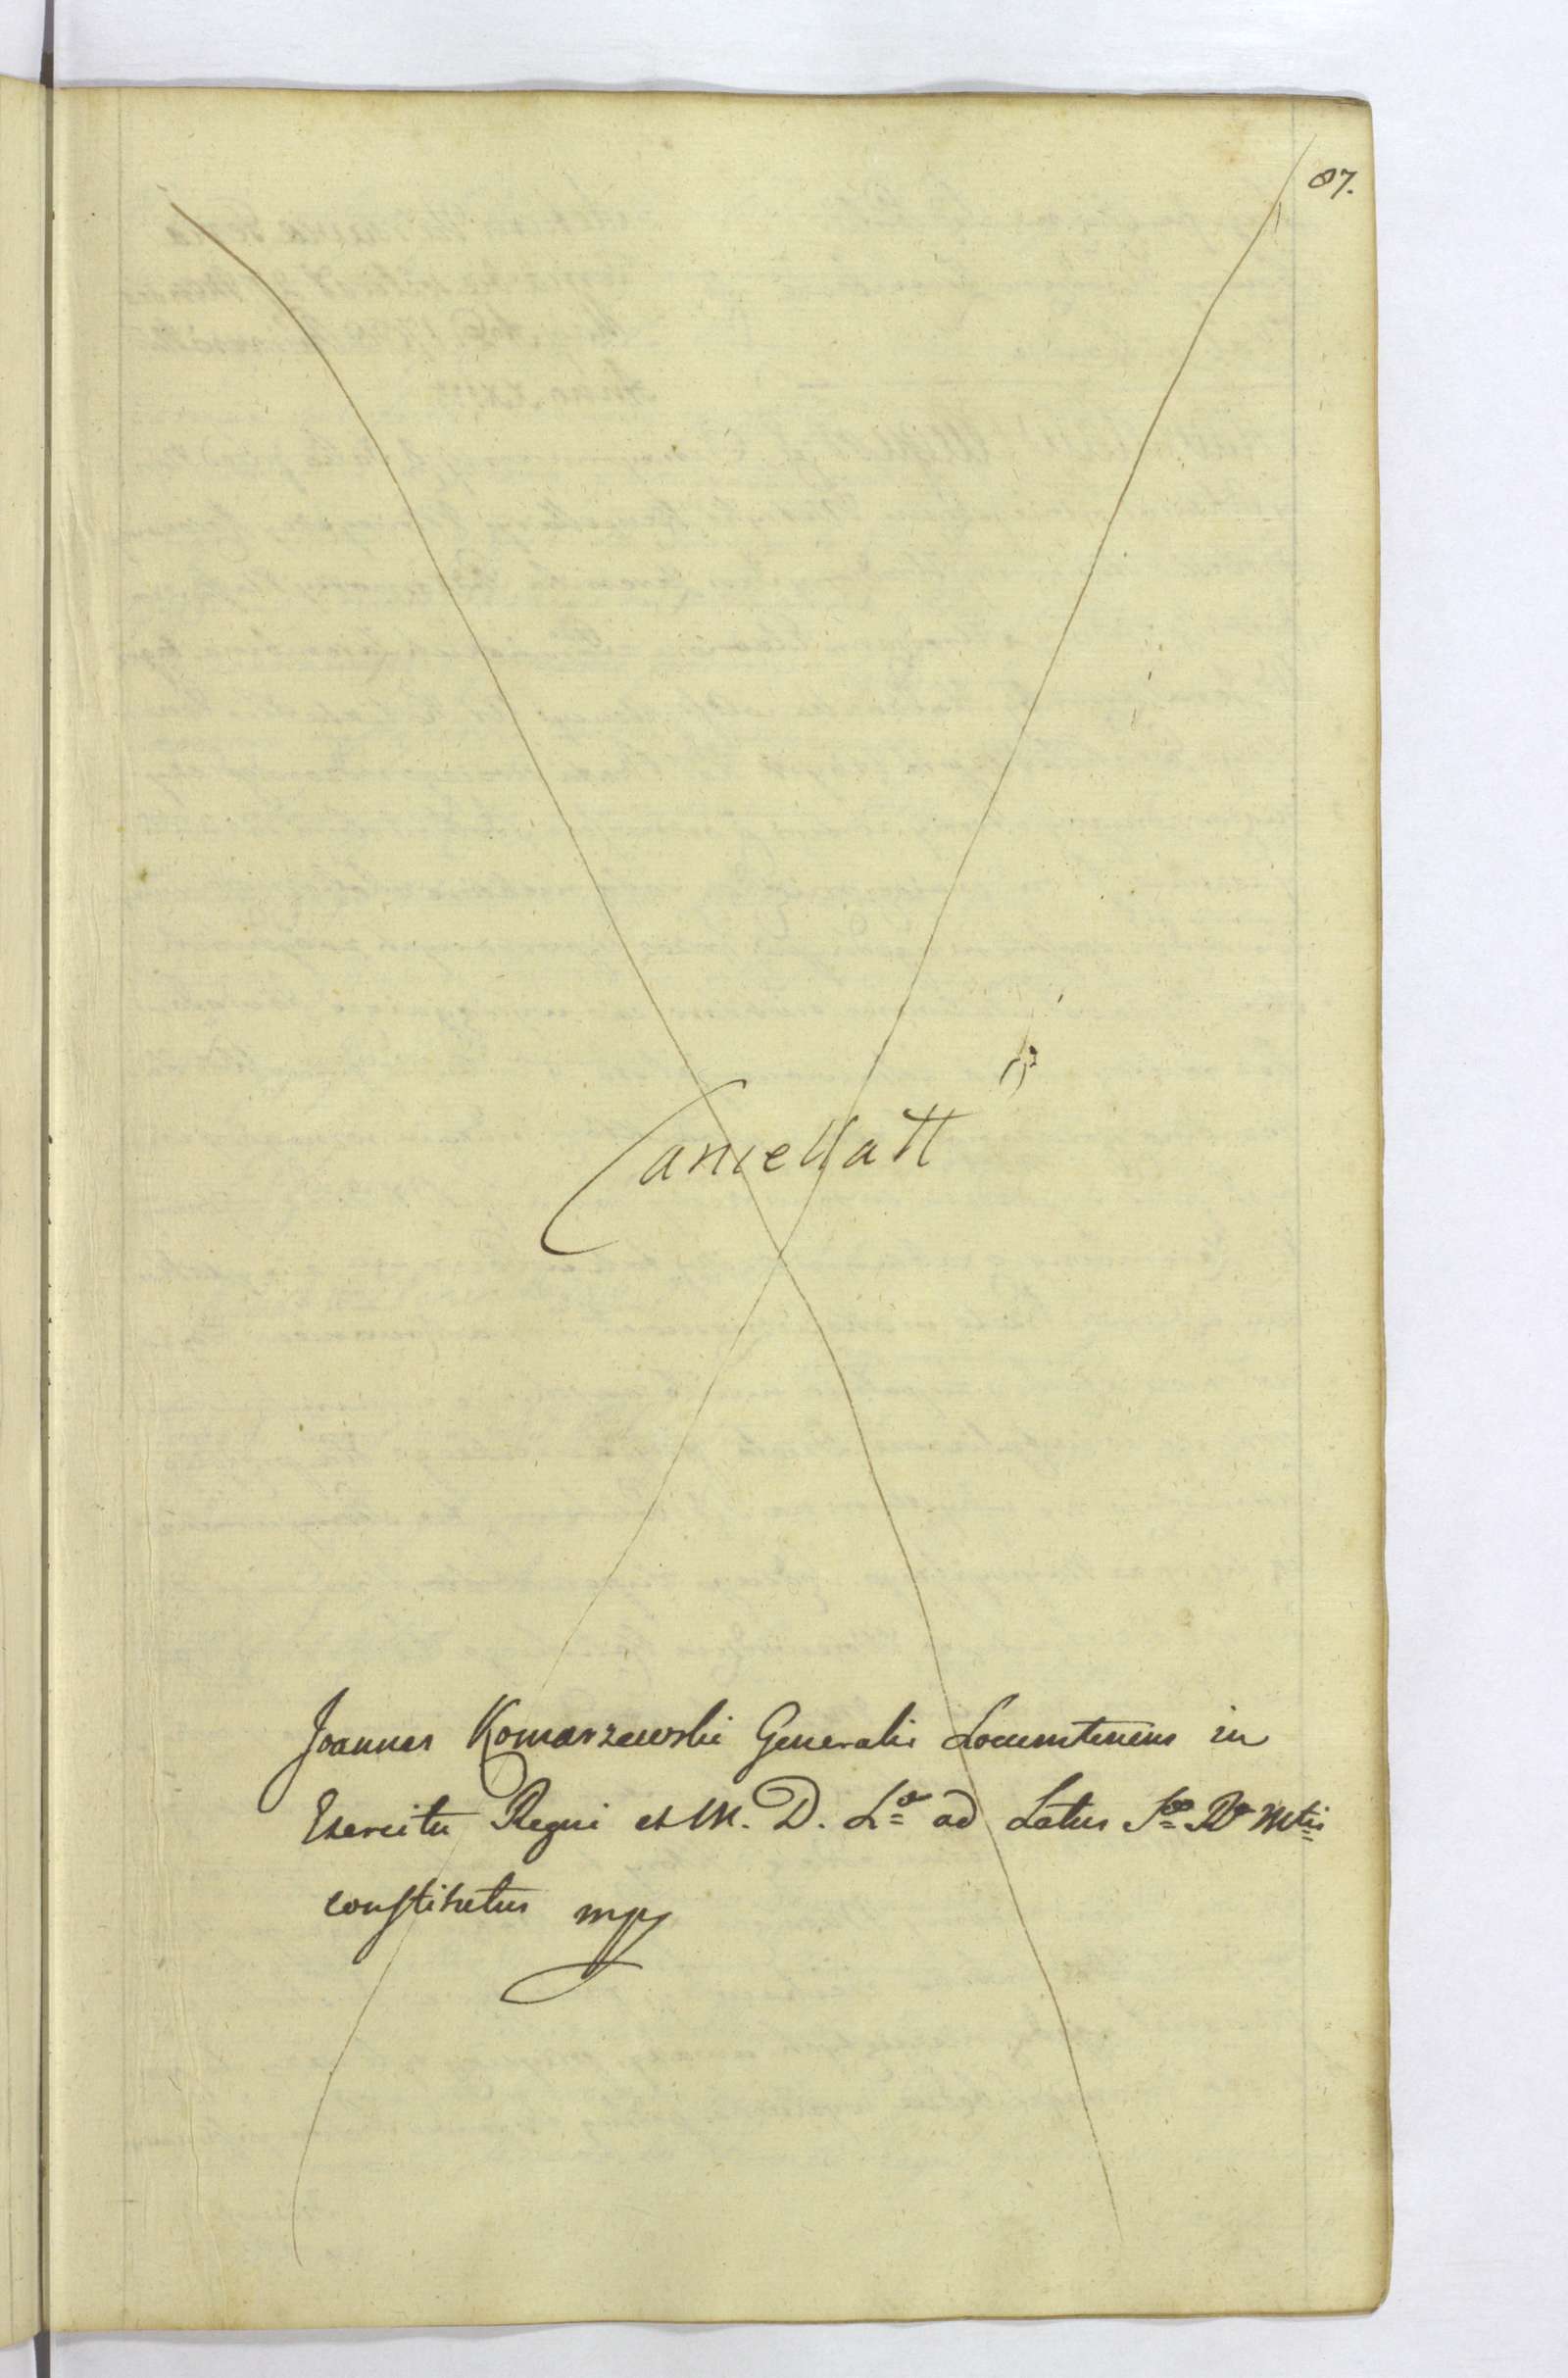 87.
Cancellatt
Joannes Komarzewski Generalis Locumtenens in
Exercitu Regni et M. D. L. ad Latus S. R. Mtis
constitutus mpp